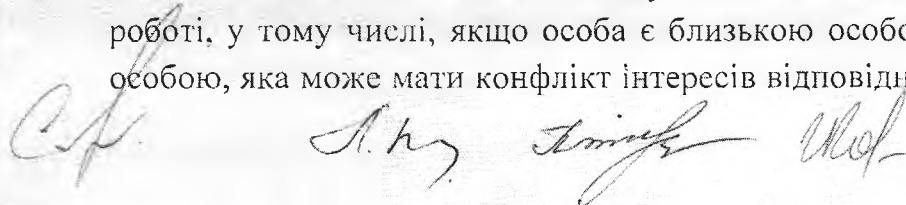 роботі, у тому числі, якщо особа є близькою особо
особою, яка може мати конфлікт інтересів відповідн